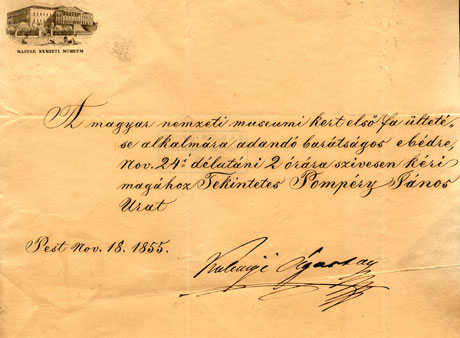 MAGYAR NEMZETI MUSEUM
A magyar nemzeti museumi kert első fa ülteté-
se alkalmára adandó barátságos ebédre,
Nov. 24ᵉ délutáni 2 órára szivesen kéri
magához Tekintetes Pompéry János
Urat
Pest Nov. 18. 1855.
Kubinyi Ágoston